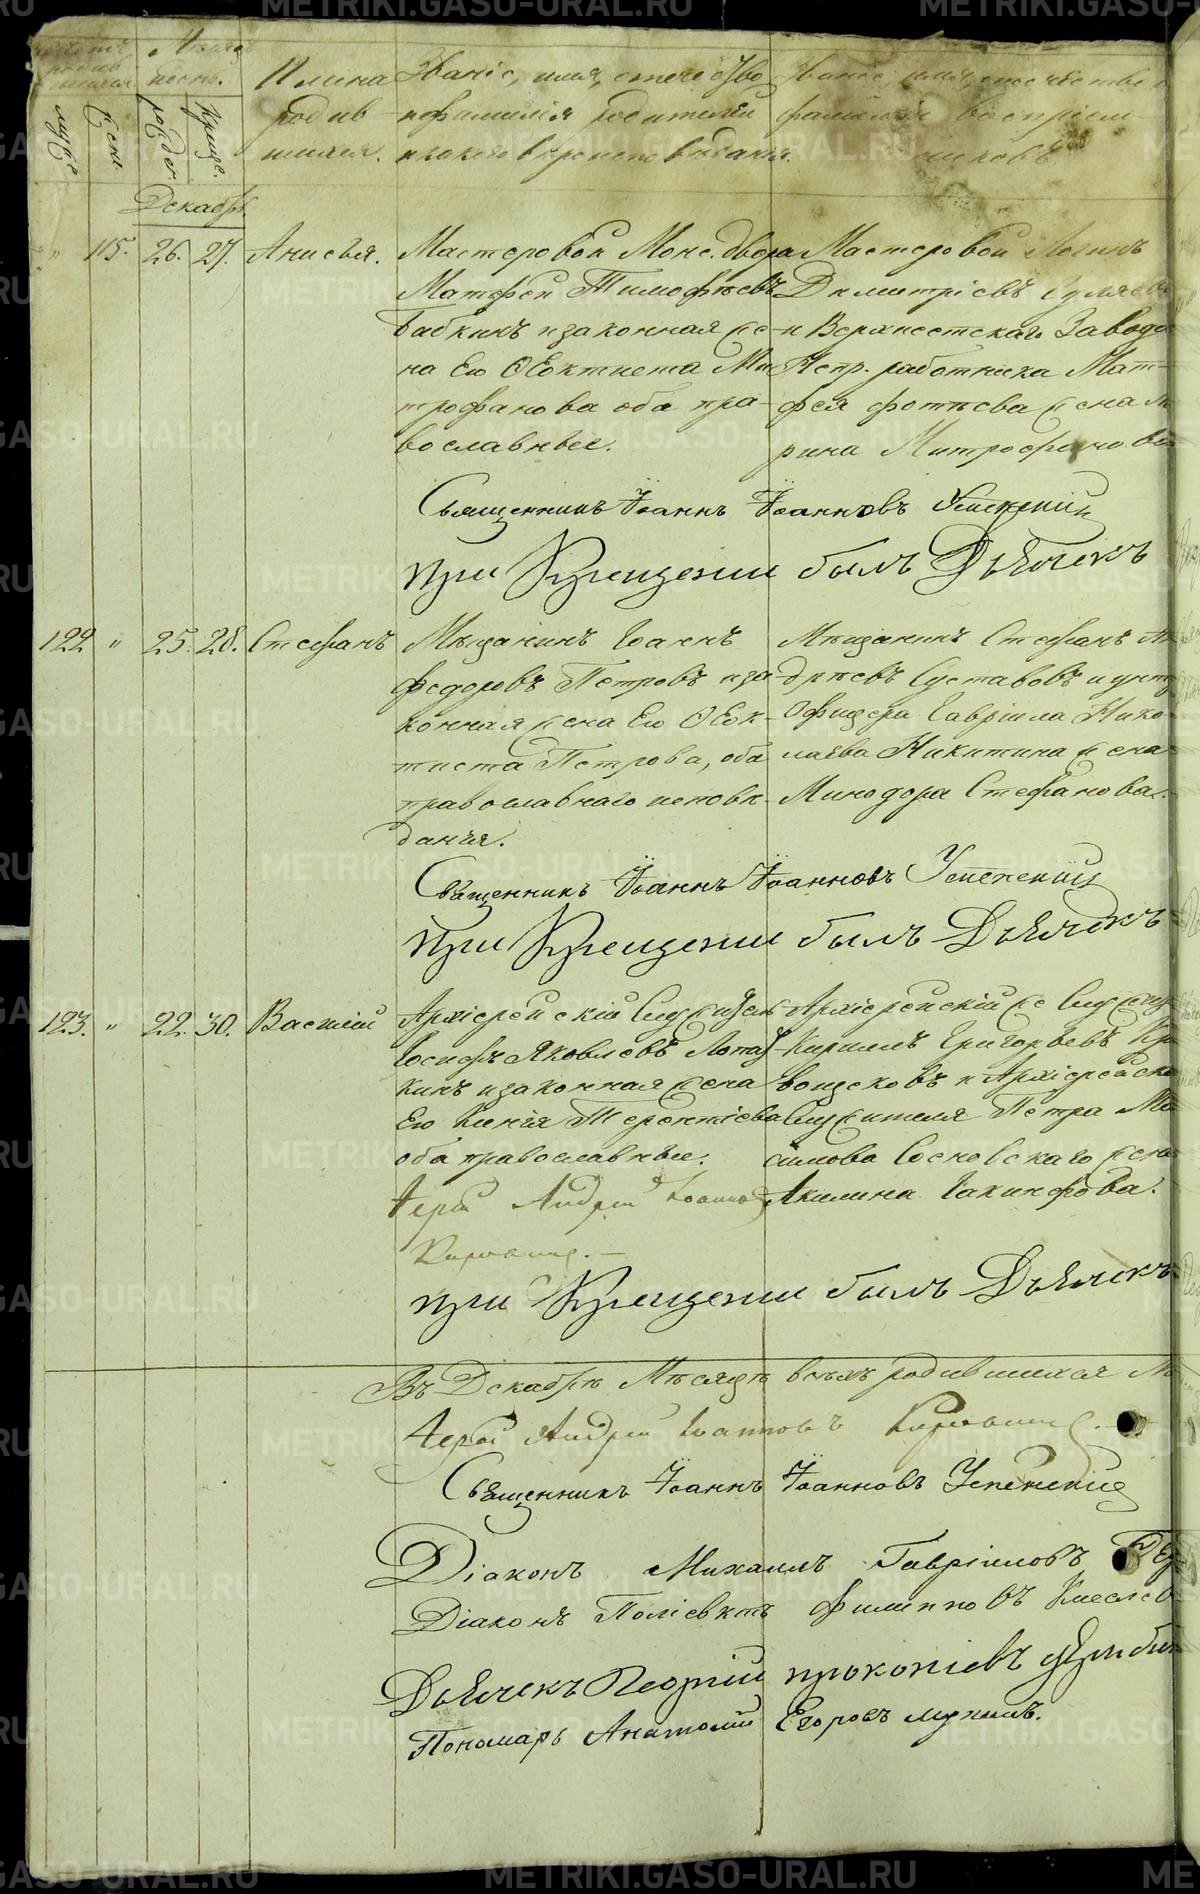 METRIKI.GASO-URAL.RU
Счетъ родив
шихся
Мѣсяц
и день.
муже
жен.
рожде.
креще.
Имена
родив
шихся.
Званіе, имя, отечество
и фамилія родителей
и какого вероисповѣданія.
Званіе, имя, отечество и
фамилія воспріем
никовъ
Декабрь.
" 115. 26. 27. Анисья.
Мастеровой Монс. двора
Матфей Тимофѣевъ
Бабкинъ и законная же
на Его Ѳеоктиста Ми
трофанова оба пра
вославные.
Мастеровой Логинъ
Димитріевъ
и Верхисетскаго Завода
Непр. работника Мат
фея Фотѣева жена М
рина Митрофанова
Священникъ Іоаннъ Іоанновъ Успенский
При Крещении былъ Дьячекъ
122 " 25. 28. Стефанъ
Мѣщанинъ Іоаннъ
Федоровъ Петровъ и за
конная жена Его Ѳеок
тиста Петрова, оба
православнаго исповѣ
данія.
Мѣщанинъ Стефанъ Ан
дрѣевъ Суставовъ и унт
Офицера Гавріила Нико
лаева Никитина жена
Минодора Стефанова.
Священникъ Іоаннъ Іоанновъ Успенский
При Крещении былъ Дьячекъ
123. " 22. 30. Василій
Архіерейскій Служитель
Іосифъ Яковлевъ Лопат
кинъ и законная жена
Его Ксенія Терентіева
оба православные.
Архіерейскій же Служи
Кириллъ Григорьевъ Кр
вощековъ и Архіерейска
Служителя Петра Ма
симова Сосновскаго жена
Акилина Іакинфова.
Іерей Андрей Іоаннов
При Крещении былъ Дьячекъ
Въ Декабрѣ Мѣсяцѣ всѣхъ родившихся М
Іерей Андрей Іоанновъ
Священникъ Іоаннъ Іоанновъ Успенский
Діаконъ Михаилъ Гавріиловъ
Діаконъ Поліевктъ Филипповъ Киселев
Дьячекъ Георгій Прокопіевъ
Пономарь Анатолій Егоровъ Мухинъ.